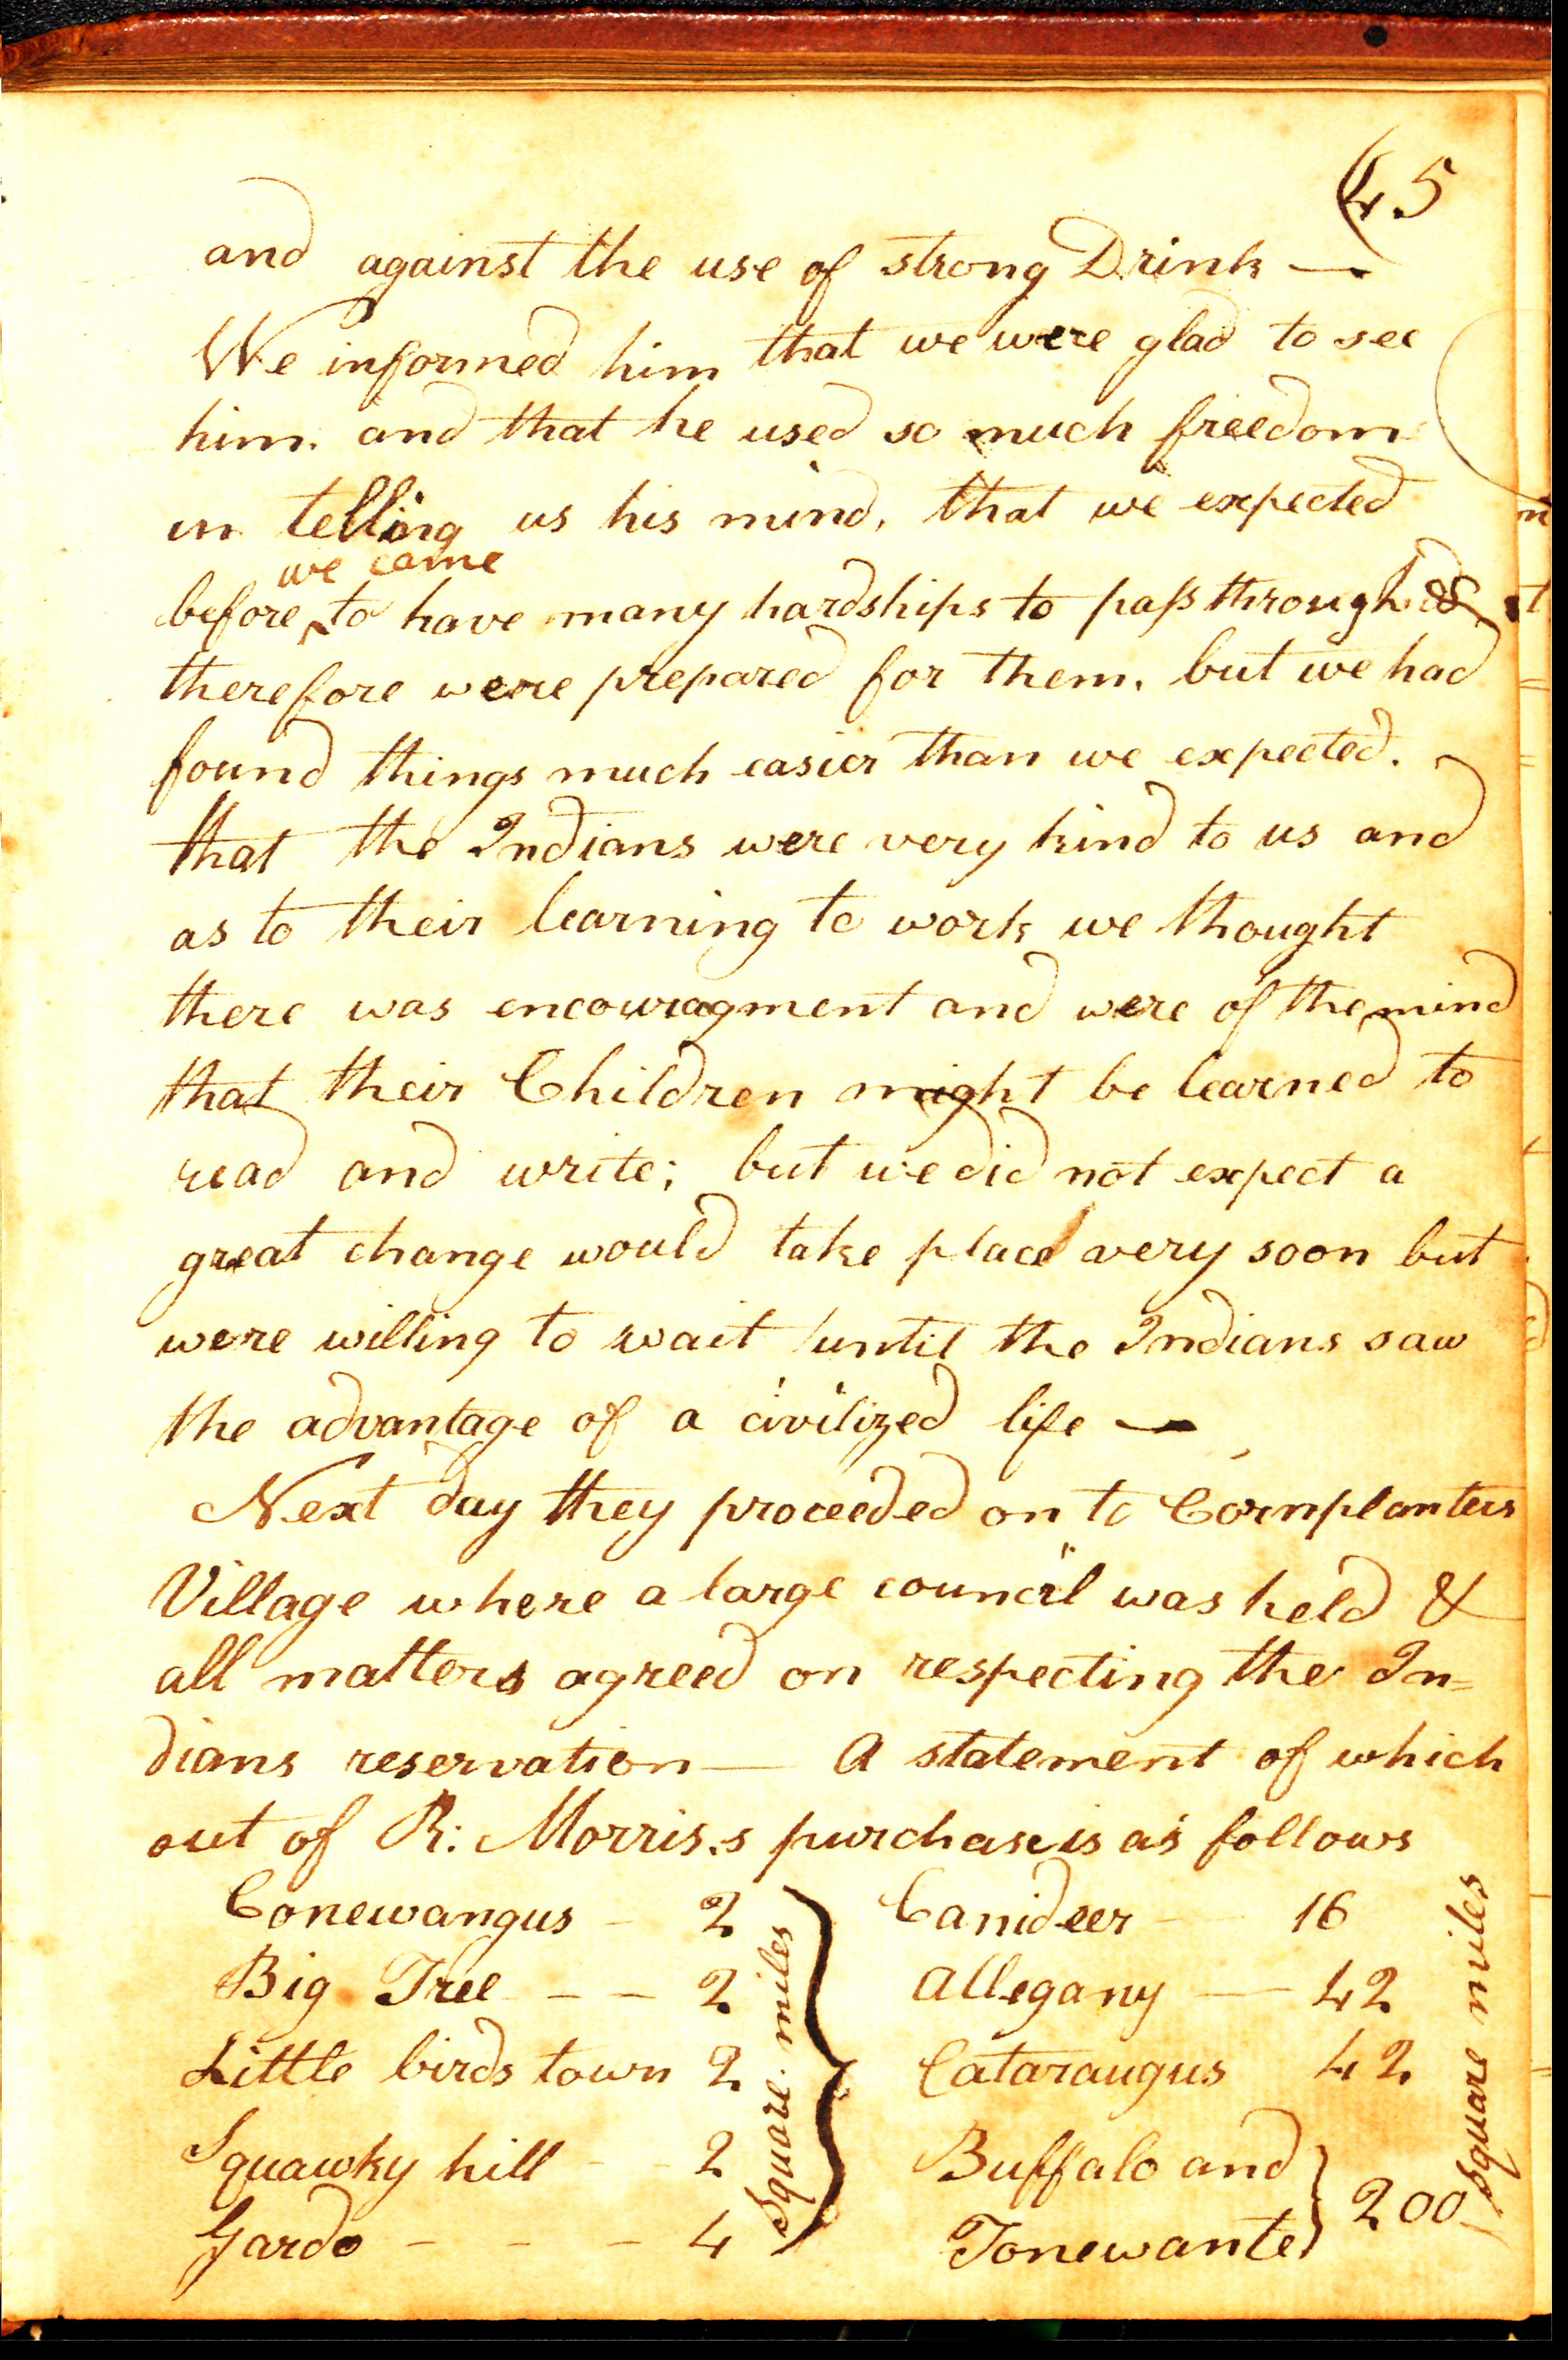 (45
and against the use of strong Drink —
We informed him that we were glad to see
him. and that he used so much freedom
in telling us his mind, that we expected
we came
before ‸ to have many hardships to paſs through &
therefore were prepared for them, but we had
found things much easier than we expected.
that the Indians were very kind to us and
as to their learning to work we thought
there was encouragment and were of the mind
that their Children might be learned to
read and write; but we did not expect a
great change would take place very soon but
were willing to wait until the Indians saw
the advantage of a civilized life —
Next day they proceeded on to Cornplanters
Village where a large council was held &
all matters agreed on respecting the In=
dians reservation — A statement of which
out of R: Morris.s purchase is as follows
Conewangus - 2
Big Tree - - 2
Little birds town 2
Squawky hill - - 2
Gardo - - - 4
Square miles
Canideer — 16
Allegany — 42
Cataraugus 42
Buffalo and
Tonewante } 200
Square miles